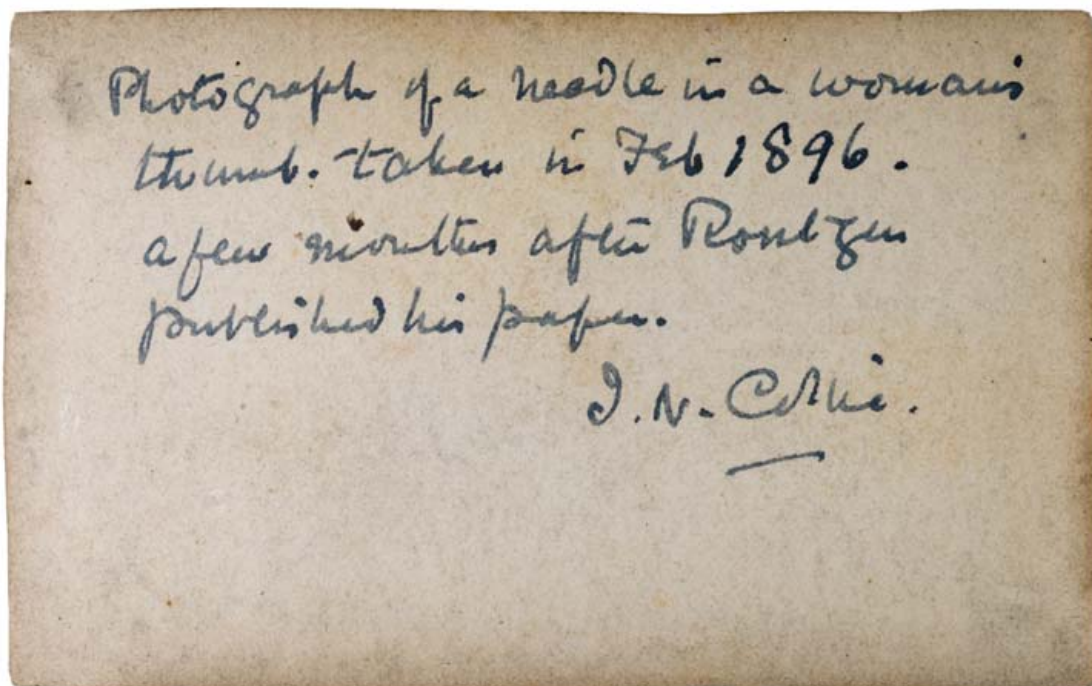 Photograph of a needle in a woman's
thumb. taken in Feb 1896.
a few months after Rontgen
published his paper.
J. N. Collie.